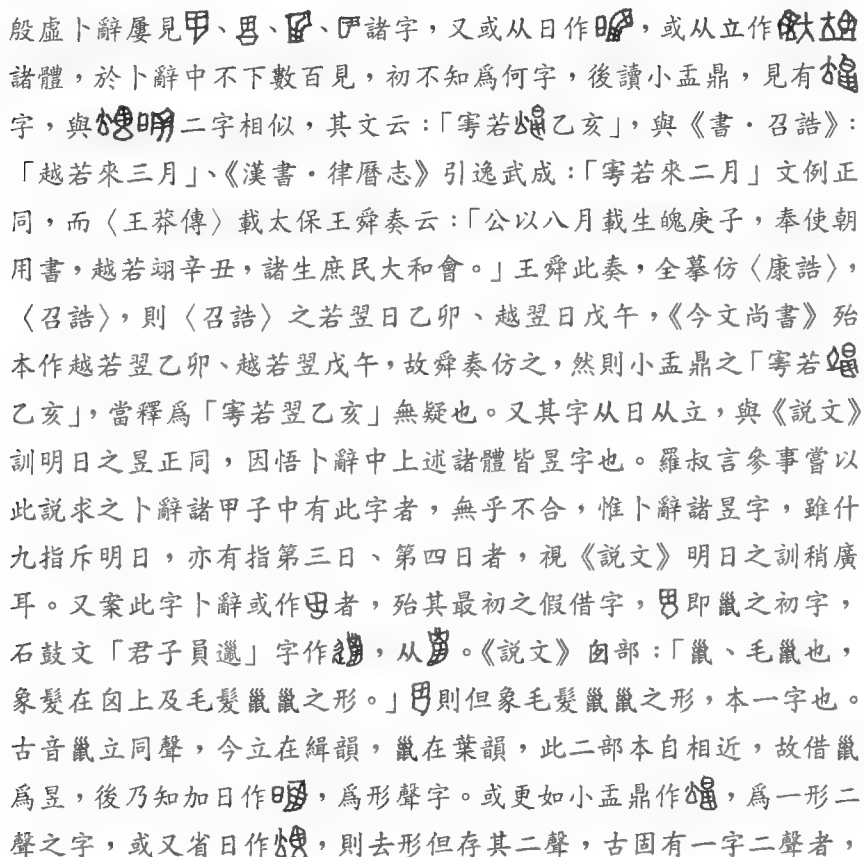 殷虛卜辭屢見、、、諸字，又或从日作，或从立作
諸體，於卜辭中不下數百見，初不知爲何字，後讀小盂鼎，見有
字，與二字相似，其文云：「雩若乙亥」，與《書．召誥》：
「越若來三月」、《漢書．律曆志》引逸武成：「雩若來二月」文例正
同，而〈王莽傳〉載太保王舜奏云：「公以八月載生魄庚子，奉使朝
用書，越若翊辛丑，諸生庶民大和會。」王舜此奏，全摹仿〈康誥〉，
〈召誥〉，則〈召誥〉之若翌日乙卯、越翌日戊午，《今文尚書》殆
本作越若翌乙卯、越若翌戊午，故舜奏仿之，然則小盂鼎之「雩若
乙亥」，當釋爲「雩若翌乙亥」無疑也。又其字从日从立，與《說文》
訓明日之昱正同，因悟卜辭中上述諸體皆昱字也。羅叔言參事嘗以
此說求之卜辭諸甲子中有此字者，無乎不合，惟卜辭諸昱字，雖什
九指斥明日，亦有指第三日、第四日者，視《說文》明日之訓稍廣
耳。又案此字卜辭或作者，殆其最初之假借字，即巤之初字，
石鼓文「君子員邋」字作，从。《說文》囟部：「巤、毛巤也，
象髮在囟上及毛髮巤巤之形。」則但象毛髮巤巤之形，本一字也。
古音巤立同聲，今立在緝韻，巤在葉韻，此二部本自相近，故借巤
爲昱，後乃知加日作，爲形聲字。或更如小盂鼎作，爲一形二
聲之字，或又省日作，則去形但存其二聲，古固有一字二聲者，